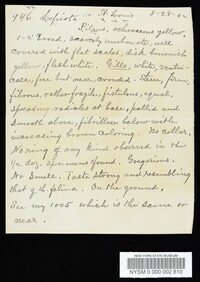 946 Lepiota St. Louis 8-28-02
Pileus, ochraceous yellow,
1-2" broad, scarcely umbonate, well
covered with flat scales, disk brownish
yellow, flesh white. Gills, white, ventri-
cose, free but near, crowded. Stem, firm,
fibrous, ochre fragile, fistulous, equal,
spreading radicels at base, pallid and
smooth above, fibrillose below with
increasing brown coloring. No collar.
No ring of any kind observed in the
½ doz. specimens found. Gregarious.
No smell. Taste strong and resembling
that of th. felina. On the ground.
See my 1005 which is the same or
near.
NEW YORK STATE MUSEUM
NYSM 0 000 002 810